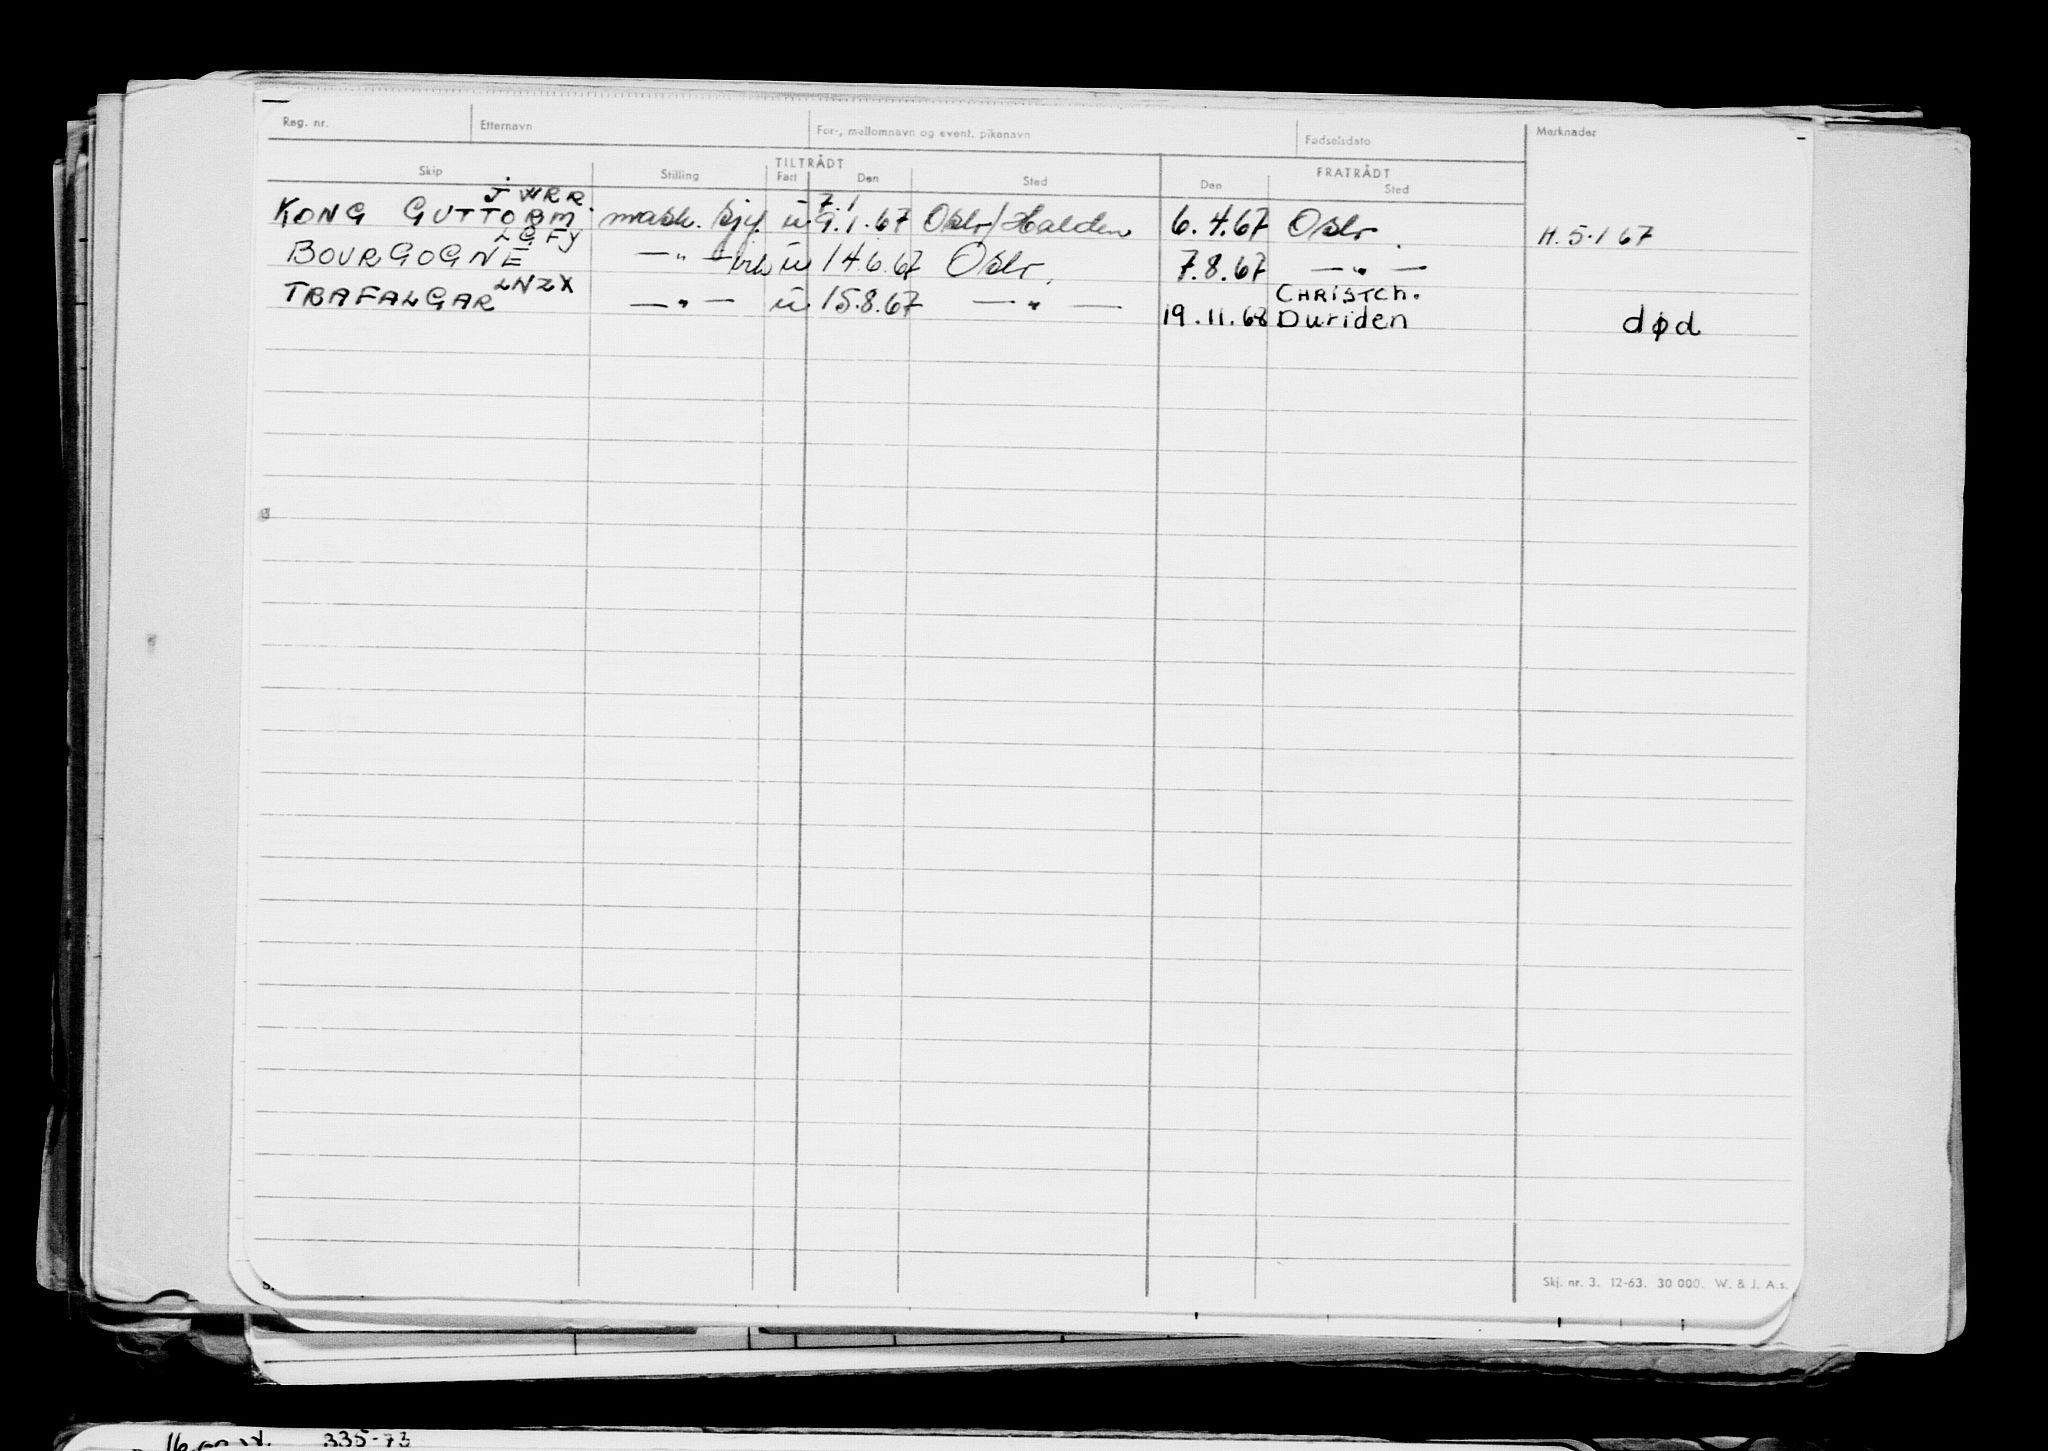 Reg. nr. Etternavn For-, mellomnavn og event. pikenavn Fødselsdato Merknader
TILTRÅDT FRATRÅDT
Skip Stilling Fart Den Sted Den Sted
JWRR. 7.1
KONG GUTTORM mask. sjef. u. 9.1.67 Oslo/Halden 6.4.67 Oslo. H. 5.1 67
LGFY
BOURGOGNE — " — u 14.6.67 Oslo. 7.8.67 — " —
LNZX CHRISTCh.
TRAFALGAR — " — u. 15.8.67 — " — 19.11.68 Duriden død
Skj. nr. 3. 12-63. 30 000. W. & J. A.s.
335-73